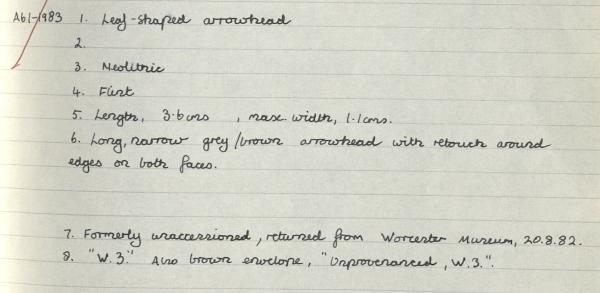 A61-1983 1. Leaf-shaped arrowhead
2.
3. Neolithic
4. Flint
5. Length, 3.6cms , max. width, 1.1cms.
6. Long, narrow grey/brown arrowhead with retouch around
edges on both faces.
7. Formerly unaccessioned, returned from Worcester Museum, 20.8.82.
8. "W.3." Also brown envelope, "Unprovenanced, W.3.".